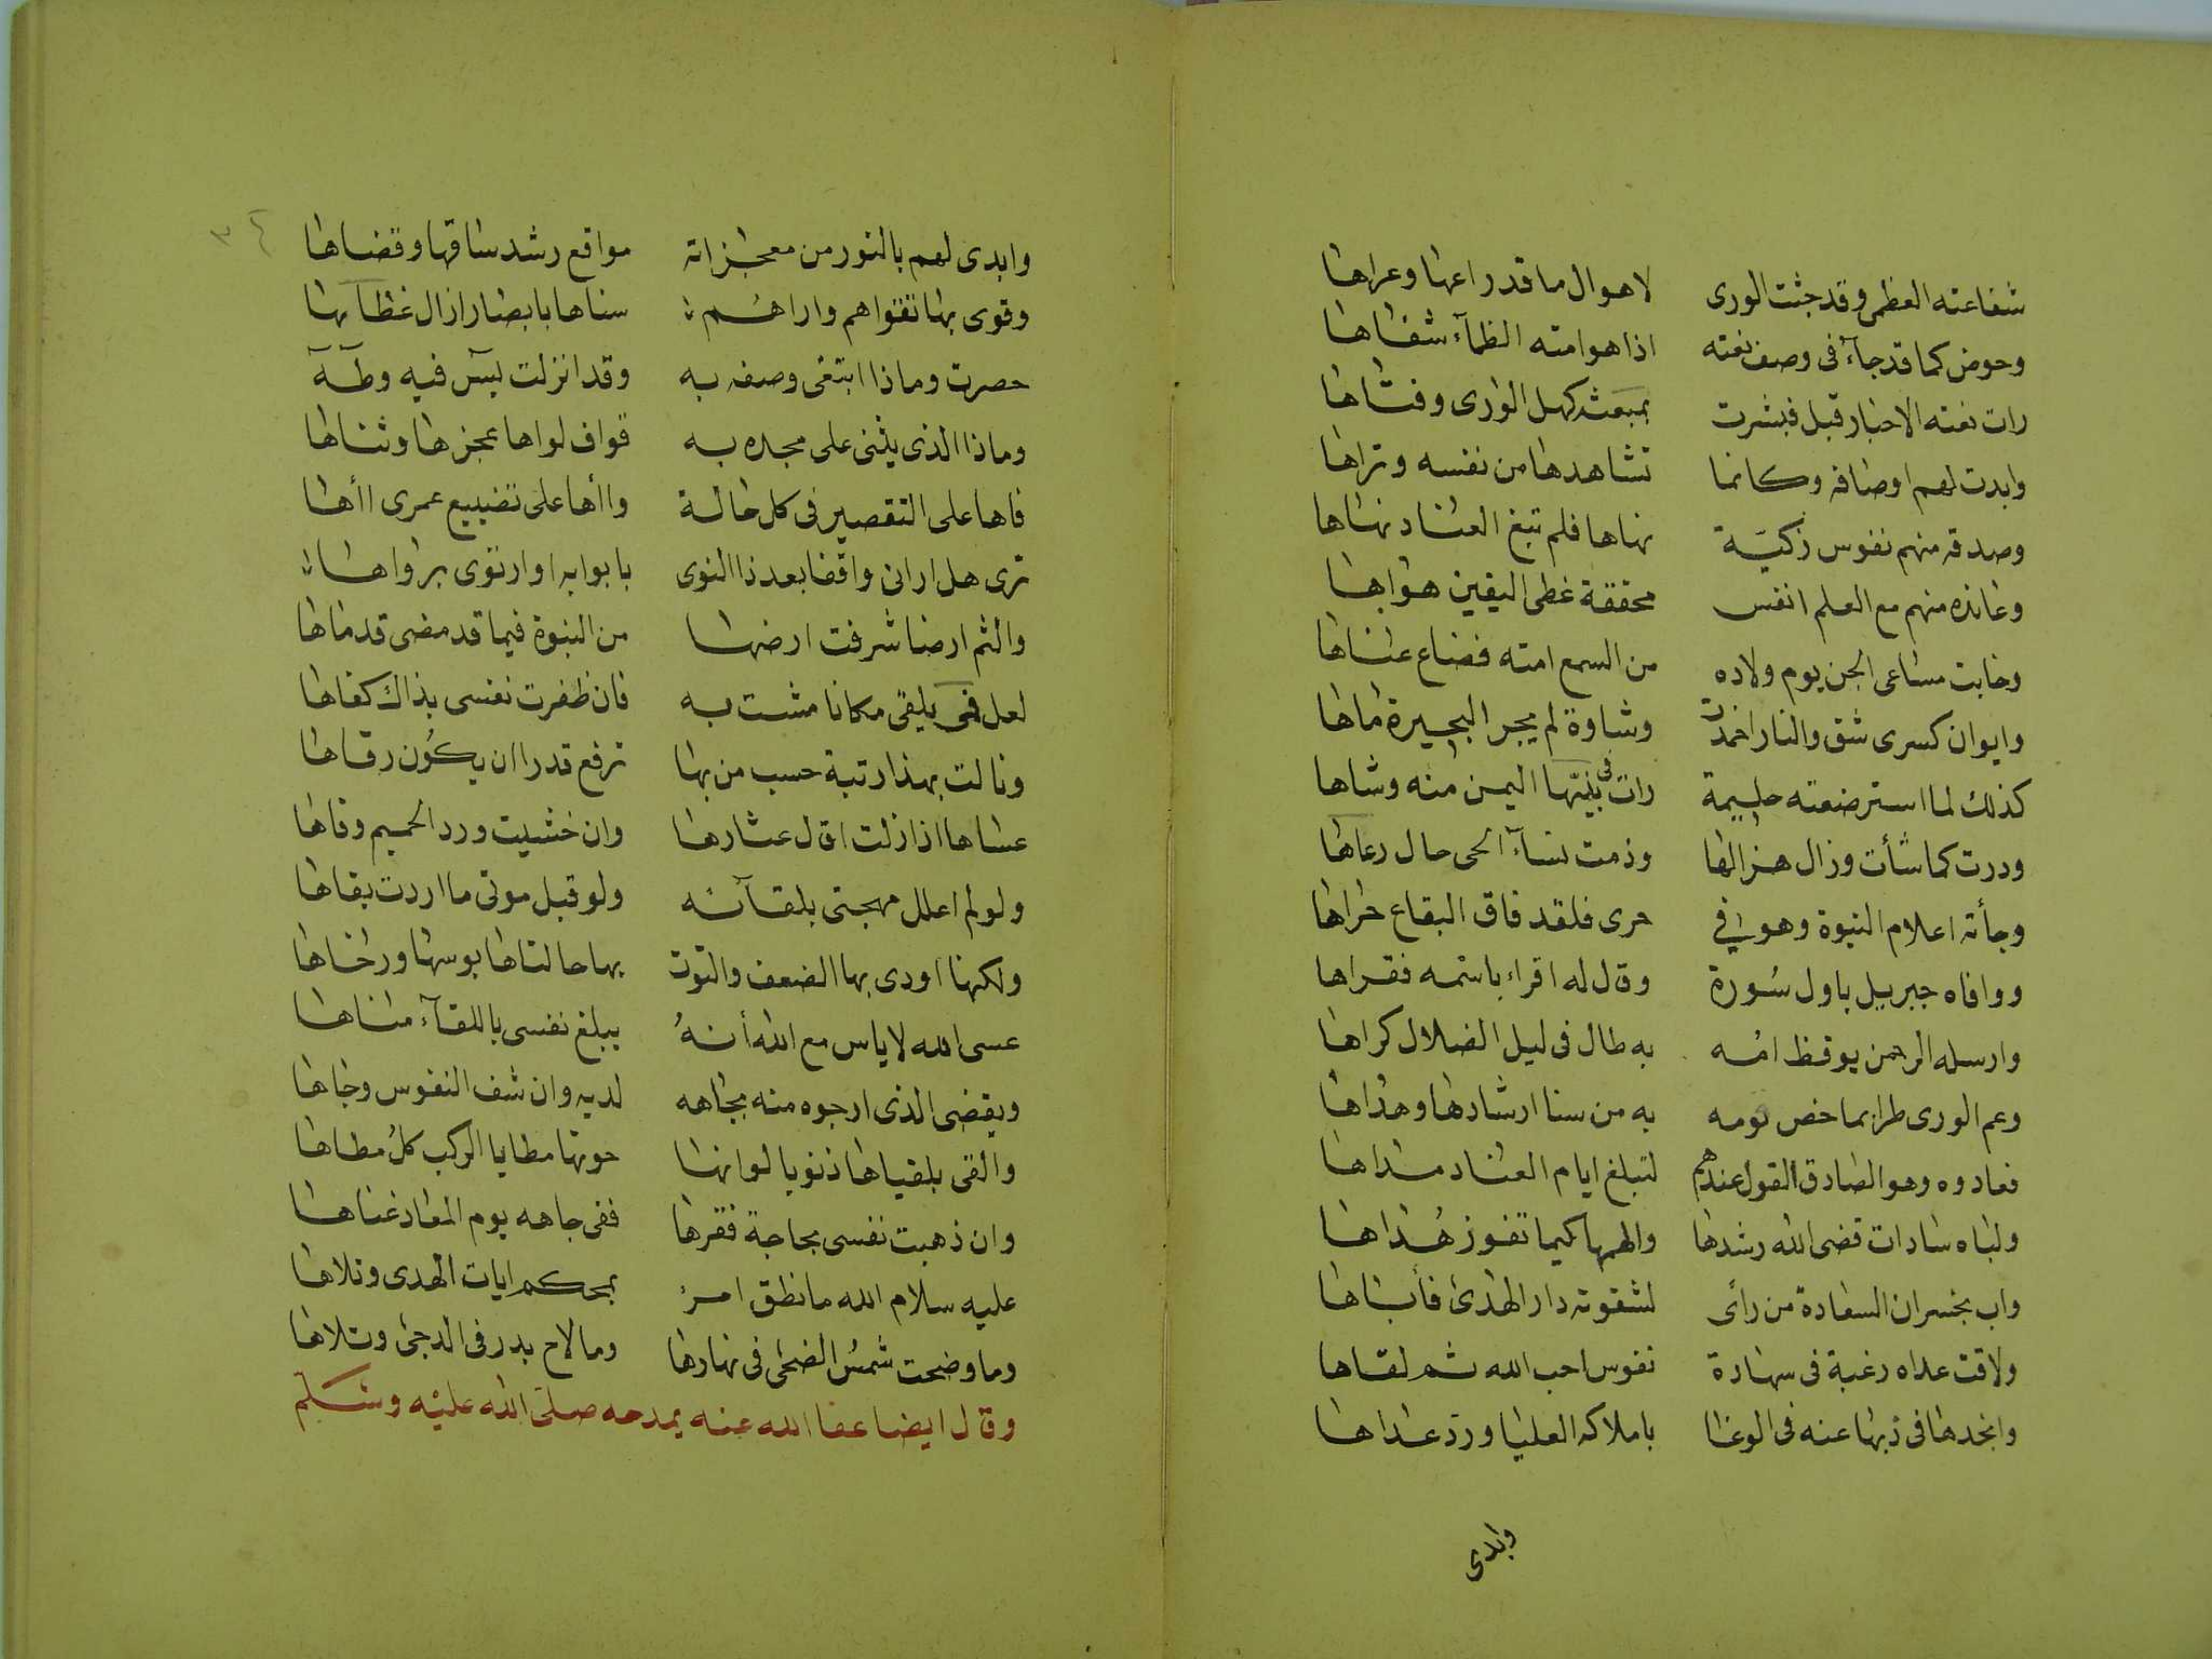 شفاعته العظمى وقد جثت الورى لاهوال ما قد راعها وعراها
وحوض كما قد جآء فى وصف نعته اذا هو امته الظمآء شفاها
رات نعته الاحبار قبل فبشرت بمبعثه كهل الورى وفتاها
وابدت لهم اوصافه وكانما تشاهدها من نفسه وتراها
وصدقه منهم نفوس زكيّة نهاها فلم تبغ العناد نهاها
وعانده منهم مع العلم انفس محققة غطى اليقين هواها
وخابت مساعى الجن يوم ولاده من السمع امته فضاع عناها
وايوان كسرى شق والنار اخمدت وساوة لم يجر البحيرة ماها
كذلك لما استرضعته حليمة رات فى بيتها اليمن منه وشاها
ودرت كما شأت وزال هزالها وذمت نسآء الحى حال رعاها
وجأته اعلام النبوة وهو فى حرى فلقد فاق البقاع حراها
ووافاه جبريل باول سورة وقال له اقراء باسمه فقراها
وارسله الرحمن يوقظ امه به طال فى ليل الضلال كراها
وعم الورى طرا بما خص قومه به من سنا ارشادها وهداها
فعادوه وهو الصادق القول عندهم لتبلغ ايام العناد مداها
ولباه سادات قضى الله رشدها والهمها كيما تفوز هُداها
واب بخسران السعادة من رأى لشقوته دار الهدى فأباها
ولاقت عداه رغبة فى سهادة نفوس احب الله ثم لقاها
وانجدها فى ذبها عنه فى الوغا باملاكه العليا ورد عداها
وابدى
٣٤
وابدى لهم بالنور من معجزاته مواقع رشد ساقها وقضاها
وقوى بها تقواهم واراهُم سناها بابصار ازال غطآها
حصرت وماذا ابتغى وصفه به وقد انزلت يسٓ فيه وطٓهٓ
وماذا الذى يثنى على مجده به قواف لواها عجزها وثناها
فاها على التقصير فى كل حالة واأها على تضييع عمرى اأها
ترى هل ارانى واقفا بعد ذا النوى بابوابه او ارتوى برواها
والثم ارضا شرفت ارضها من النبوة فيما قد مضى قدماها
لعل فمى يلقى مكانا مشت به فان ظفرت نفسى بذاك كفاها
ونالت بهذا رتبة حسب من بها ترفع قدرا ان يكُون رقاها
عساها اذا زلت اقال عثارها وان خشيت ورد الحميم وقاها
ولو لم اعلل مهجتى بلقآئه ولو قبل موتى ما اردت بقاها
ولكنها اودى بها الضعف والتوت بها حالتاها بوسها ورخاها
عسى الله لا ياس مع الله أنهُ يبلغ نفسى باللقآء مناها
ويقضى الذى ارجوه منه بجاهه لديه وان شف النفوس وجاها
والقى بلقياها ذنوبا لو انها حوتها مطايا الركب كلُ مطاها
وان ذهبت نفسى بحاجة فقرها ففى جاهه يوم المعاد غناها
عليه سلام الله ما نطق امرؤ بمحكم ايات الهدى وتلاها
وما وضحت شمسُ الضحى فى نهارها وما لاح بدر فى الدجى وتلاها
وقال ايضا عفا الله عنه يمدحه صلى الله عليه وسلم